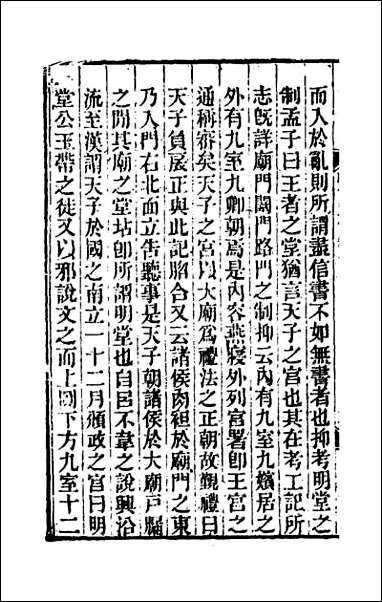 而入於亂則所謂盡信書不如無書者也抑考明堂之
制孟子曰王者之堂猶言天子之宮也其在考工記所
志既詳廟門闈門路門之制抑云內有九室九嬪居之
外有九室九卿朝焉是內容燕寢外列官署卽王宮之
通稱審矣天子之宮以大廟爲禮法之正朝故覲禮曰
天子負扆正與此記脗合又云諸侯肉袒於廟門之東
乃入門右北面立告聽事是天子朝諸侯於大廟戸牖
之閒其廟之堂坫卽所謂明堂也自呂不韋之說興沿
流至漢謂天子於國之南立一十二月頒政之宮曰明
堂公玉帶之徒又以邪說文之而上圓下方九室十二